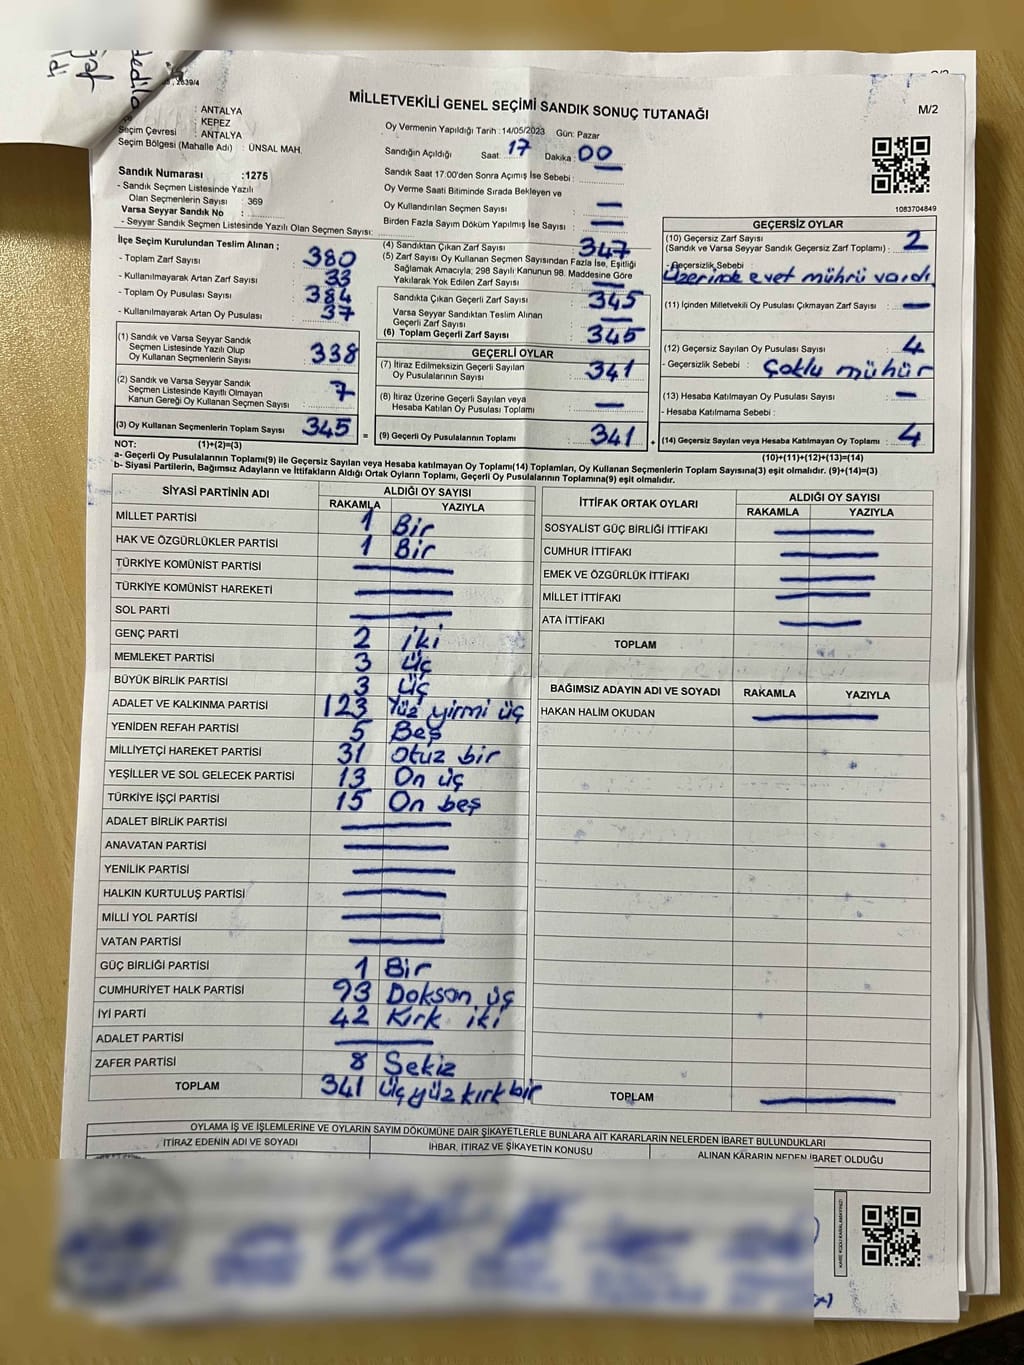 MİLLETVEKİLİ GENEL SEÇİMİ SANDIK SONUÇ TUTANAĞI
M/2
: ANTALYA
: KEPEZ
Seçim Çevresi : ANTALYA
Seçim Bölgesi (Mahalle Adı) : ÜNSAL MAH.
Sandık Numarası :1275
- Sandık Seçmen Listesinde Yazılı
Olan Seçmenlerin Sayısı : 369
Varsa Seyyar Sandık No :
- Seyyar Sandık Seçmen Listesinde Yazılı Olan Seçmen Sayısı:
Oy Vermenin Yapıldığı Tarih : 14/05/2023 Gün: Pazar
Sandığın Açıldığı Saat: 17 Dakika: 00
Sandık Saat 17:00'den Sonra Açımış İse Sebebi :
Oy Verme Saati Bitiminde Sırada Bekleyen ve
Oy Kullandırılan Seçmen Sayısı : —
Birden Fazla Sayım Döküm Yapılmış İse Sayısı : —
1083704849
İlçe Seçim Kurulundan Teslim Alınan ;
- Toplam Zarf Sayısı : 380
- Kullanılmayarak Artan Zarf Sayısı : 33
- Toplam Oy Pusulası Sayısı : 384
- Kullanılmayarak Artan Oy Pusulası : 37
(1) Sandık ve Varsa Seyyar Sandık
Seçmen Listesinde Yazılı Olup
Oy Kullanan Seçmenlerin Sayısı : 338
(2) Sandık ve Varsa Seyyar Sandık
Seçmen Listesinde Kayıtlı Olmayan
Kanun Gereği Oy Kullanan Seçmen Sayısı : 7
(3) Oy Kullanan Seçmenlerin Toplam Sayısı : 345 =
(4) Sandıktan Çıkan Zarf Sayısı : 347
(5) Zarf Sayısı Oy Kullanan Seçmen Sayısından Fazla İse, Eşitliği
Sağlamak Amacıyla; 298 Sayılı Kanunun 98. Maddesine Göre
Yakılarak Yok Edilen Zarf Sayısı : —
Sandıkta Çıkan Geçerli Zarf Sayısı : 345
Varsa Seyyar Sandıktan Teslim Alınan
Geçerli Zarf Sayısı : —
(6) Toplam Geçerli Zarf Sayısı : 345
GEÇERLİ OYLAR
(7) İtiraz Edilmeksizin Geçerli Sayılan
Oy Pusulalarının Sayısı : 341
(8) İtiraz Üzerine Geçerli Sayılan veya
Hesaba Katılan Oy Pusulası Toplamı : —
(9) Geçerli Oy Pusulalarının Toplamı : 341 +
GEÇERSİZ OYLAR
(10) Geçersiz Zarf Sayısı
(Sandık ve Varsa Seyyar Sandık Geçersiz Zarf Toplamı) : 2
- Geçersizlik Sebebi :
Üzerinde evet mührü vardı.
(11) İçinden Milletvekili Oy Pusulası Çıkmayan Zarf Sayısı : —
(12) Geçersiz Sayılan Oy Pusulası Sayısı : 4
- Geçersizlik Sebebi : Çoklu mühür
(13) Hesaba Katılmayan Oy Pusulası Sayısı : —
- Hesaba Katılmama Sebebi :
(14) Geçersiz Sayılan veya Hesaba Katılmayan Oy Toplamı : 4
NOT: (1)+(2)=(3)
(10)+(11)+(12)+(13)=(14)
a- Geçerli Oy Pusulalarının Toplamı(9) ile Geçersiz Sayılan veya Hesaba katılmayan Oy Toplamı(14) Toplamları, Oy Kullanan Seçmenlerin Toplam Sayısına(3) eşit olmalıdır. (9)+(14)=(3)
b- Siyasi Partilerin, Bağımsız Adayların ve İttifakların Aldığı Ortak Oyların Toplamı, Geçerli Oy Pusulalarının Toplamına(9) eşit olmalıdır.
SİYASİ PARTİNİN ADI ALDIĞI OY SAYISI
RAKAMLA YAZIYLA
MİLLET PARTİSİ 1 Bir
HAK VE ÖZGÜRLÜKLER PARTİSİ 1 Bir
TÜRKİYE KOMÜNİST PARTİSİ —
TÜRKİYE KOMÜNİST HAREKETİ —
SOL PARTİ —
GENÇ PARTİ 2 iki
MEMLEKET PARTİSİ 3 üç
BÜYÜK BİRLİK PARTİSİ 3 üç
ADALET VE KALKINMA PARTİSİ 123 Yüz yirmi üç
YENİDEN REFAH PARTİSİ 5 Beş
MİLLİYETÇİ HAREKET PARTİSİ 31 Otuz bir
YEŞİLLER VE SOL GELECEK PARTİSİ 13 On üç
TÜRKİYE İŞÇİ PARTİSİ 15 On beş
ADALET BİRLİK PARTİSİ —
ANAVATAN PARTİSİ —
YENİLİK PARTİSİ —
HALKIN KURTULUŞ PARTİSİ —
MİLLİ YOL PARTİSİ —
VATAN PARTİSİ —
GÜÇ BİRLİĞİ PARTİSİ 1 Bir
CUMHURİYET HALK PARTİSİ 93 Doksan üç
İYİ PARTİ 42 Kırk iki
ADALET PARTİSİ —
ZAFER PARTİSİ 8 Sekiz
TOPLAM 341 üçyüz kırk bir
İTTİFAK ORTAK OYLARI ALDIĞI OY SAYISI
RAKAMLA YAZIYLA
SOSYALİST GÜÇ BİRLİĞİ İTTİFAKI —
CUMHUR İTTİFAKI —
EMEK VE ÖZGÜRLÜK İTTİFAKI —
MİLLET İTTİFAKI —
ATA İTTİFAKI —
TOPLAM
BAĞIMSIZ ADAYIN ADI VE SOYADI RAKAMLA YAZIYLA
HAKAN HALİM OKUDAN —
TOPLAM —
OYLAMA İŞ VE İŞLEMLERİNE VE OYLARIN SAYIM DÖKÜMÜNE DAİR ŞİKAYETLERLE BUNLARA AİT KARARLARIN NELERDEN İBARET BULUNDUKLARI
İTİRAZ EDENİN ADI VE SOYADI İHBAR, İTİRAZ VE ŞİKAYETİN KONUSU ALINAN KARARIN NEDEN İBARET OLDUĞU